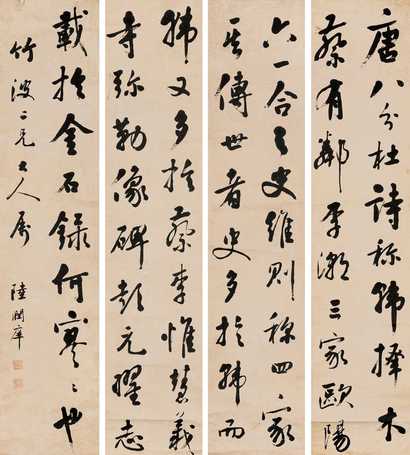 唐八分杜詩称韓擇木
蔡有鄰李潮三家歐陽
六一合之史維則称四家
其傳世者史多於韓而
韓又多於蔡李惟慧義
寺弥勒像碑彭元曜志
載於金石錄何寥〻也
竹波二兄大人属 陸潤庠